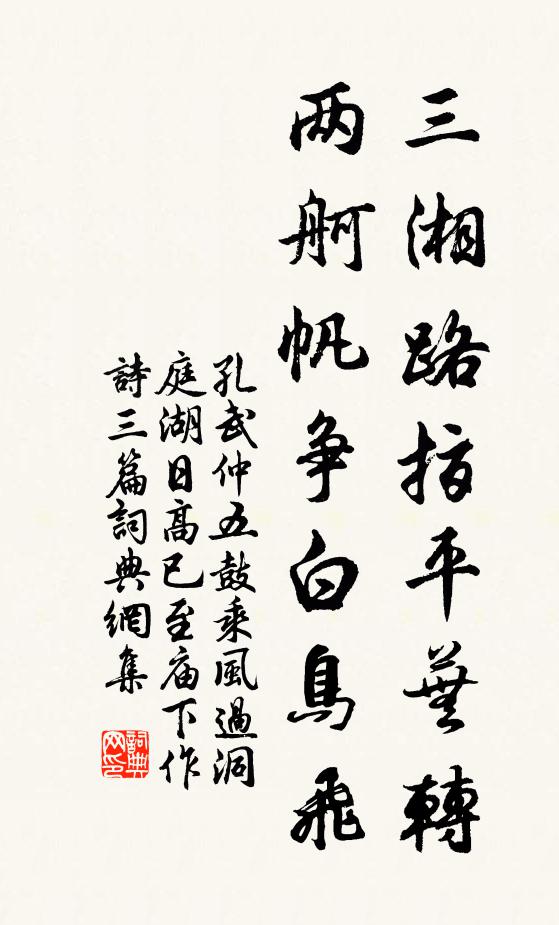 三湘路指平蕪轉
两舸帆争白鳥飛
孔武仲五鼓乘風過洞
庭湖日高已至庙下作
詩三篇詞典網集
詞典网印